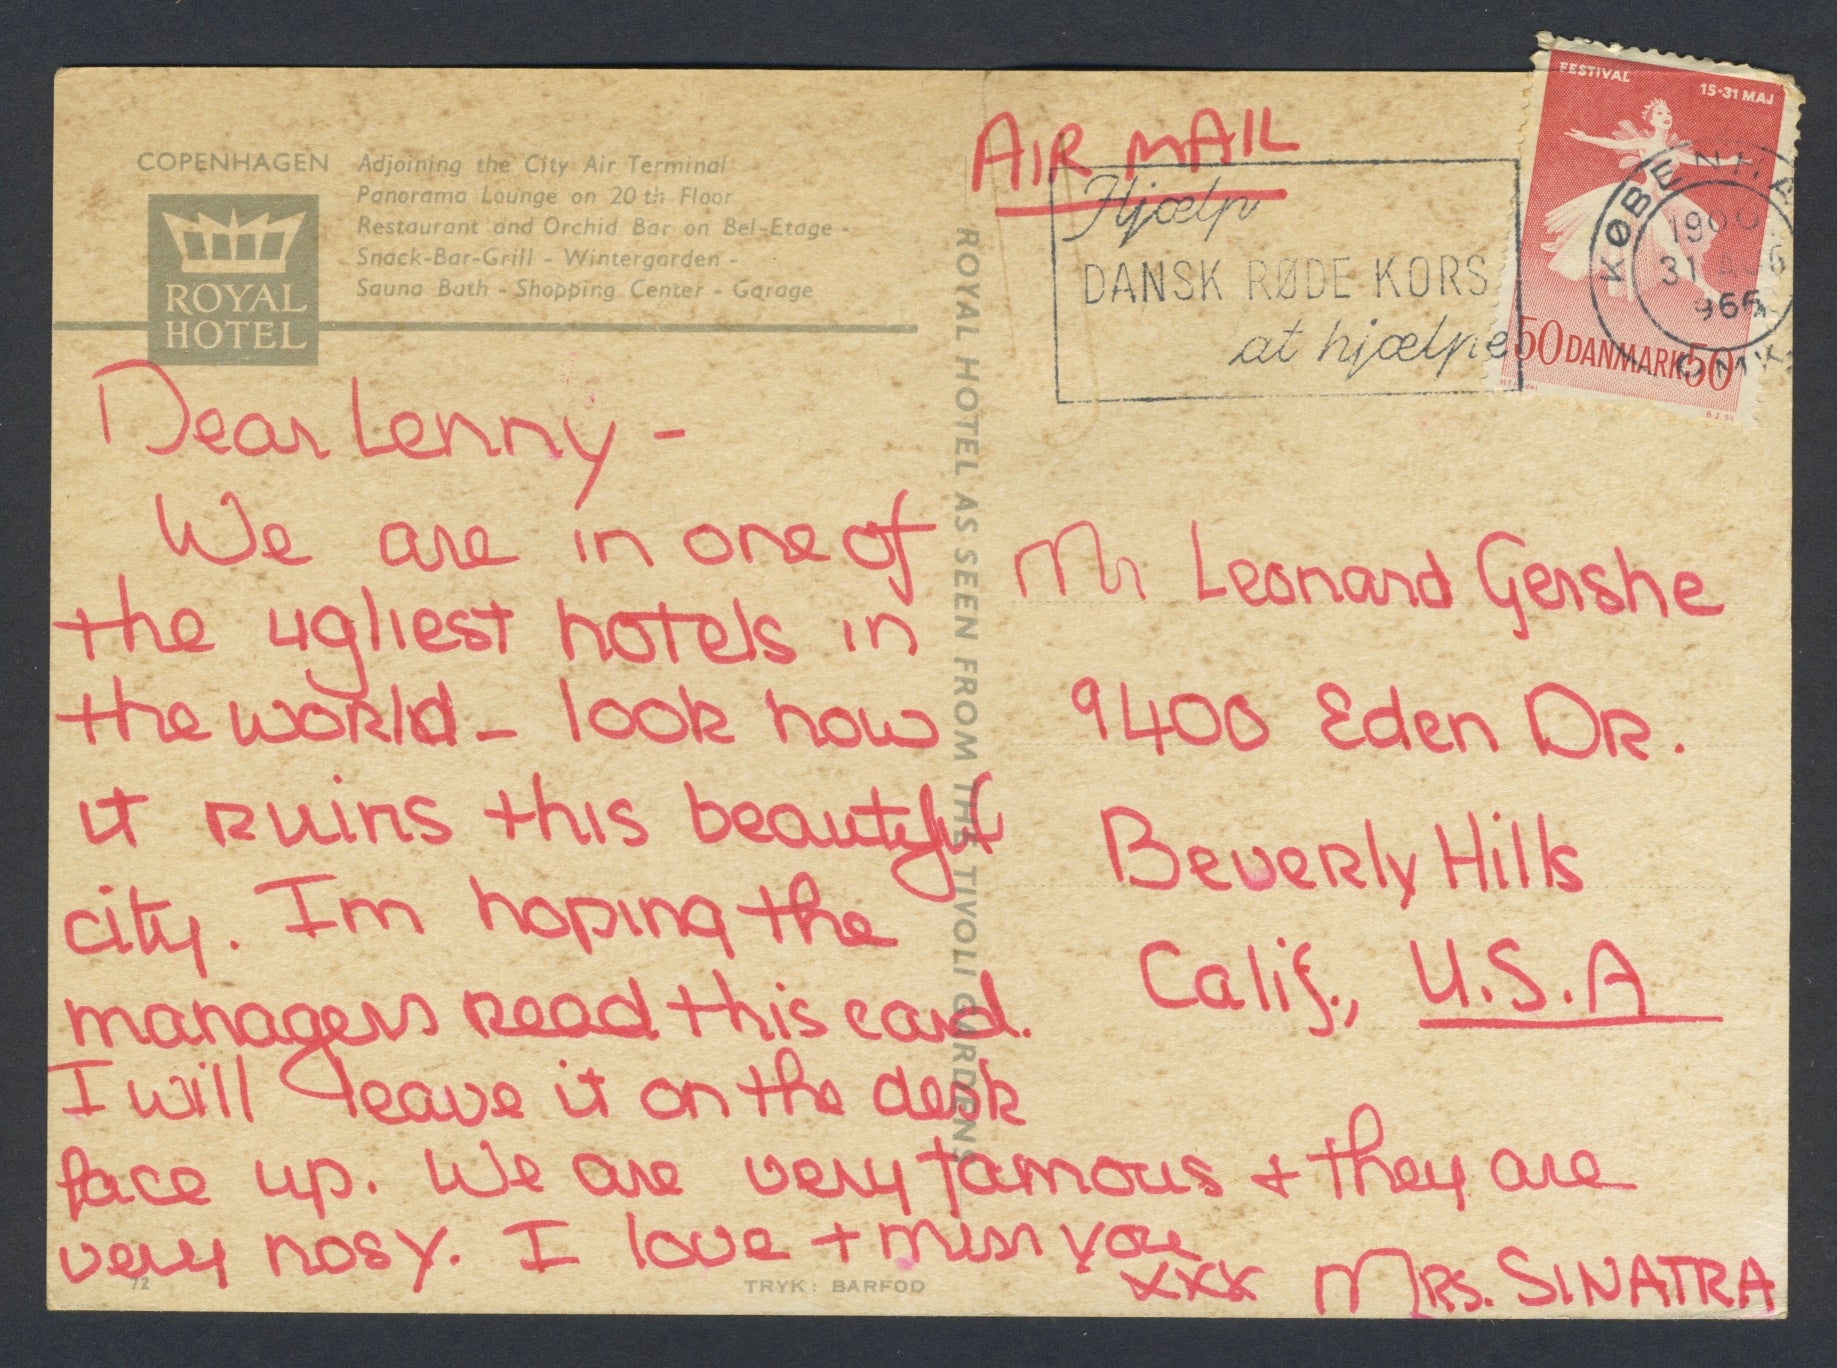 COPENHAGEN
Adjoining the City Air Terminal
Panorama Lounge on 20 th Floor
Restaurant and Orchid Bar on Bel-Etage -
Snack-Bar-Grill - Wintergarden -
Sauna Bath - Shopping Center - Garage
ROYAL
HOTEL
Dear Lenny -
We are in one of
the ugliest hotels in
the world - look how
it ruins this beautiful
city. Im hoping the
managers read this card.
I will leave it on the desk
face up. We are very famous + they are
very nosy. I love + miss you
xxx Mrs. SINATRA
72
TRYK: BARFOD
ROYAL HOTEL AS SEEN FROM THE TIVOLI GARDENS
AIR MAIL
Hjælp
DANSK RØDE KORS
at hjælpe
FESTIVAL
15-31 MAJ
50 DANMARK 50
KØBENHA
31
Mr Leonard Gershe
9400 Eden DR.
Beverly Hills
Calif., U.S.A